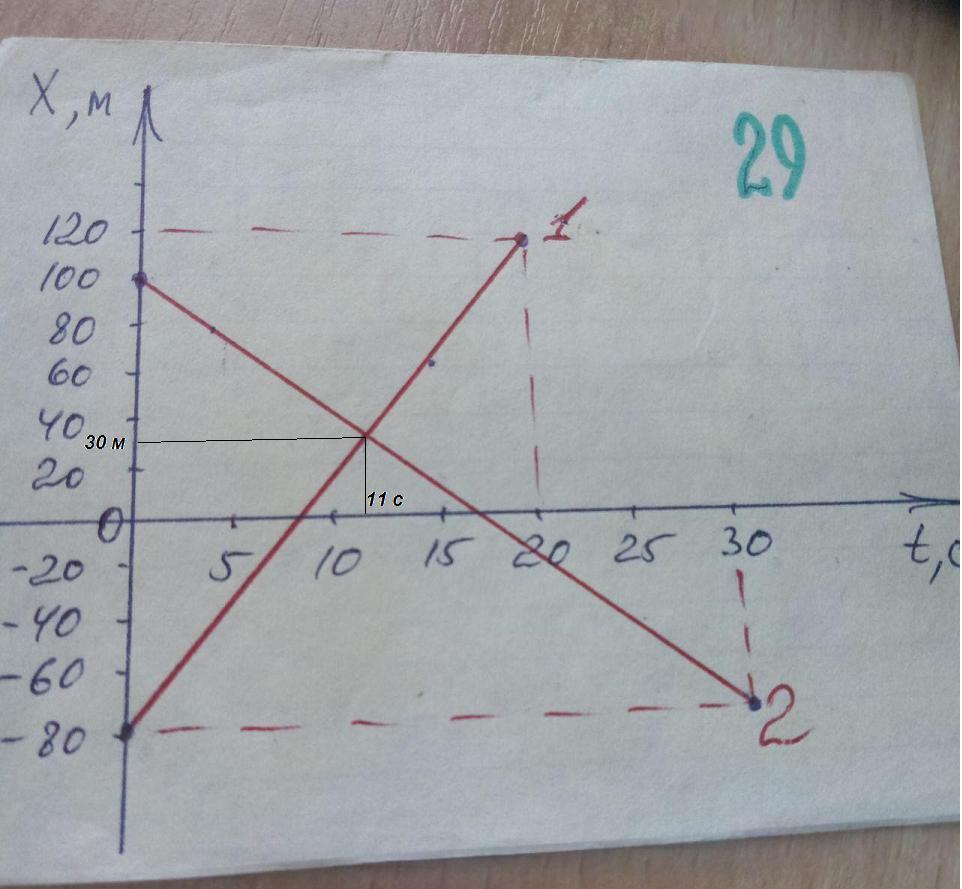 X, м
29
120
1
100
80
60
40
30 м
20
11 с
0
5
10
15
20
25
30
-20
t, с
-40
-60
-80
2